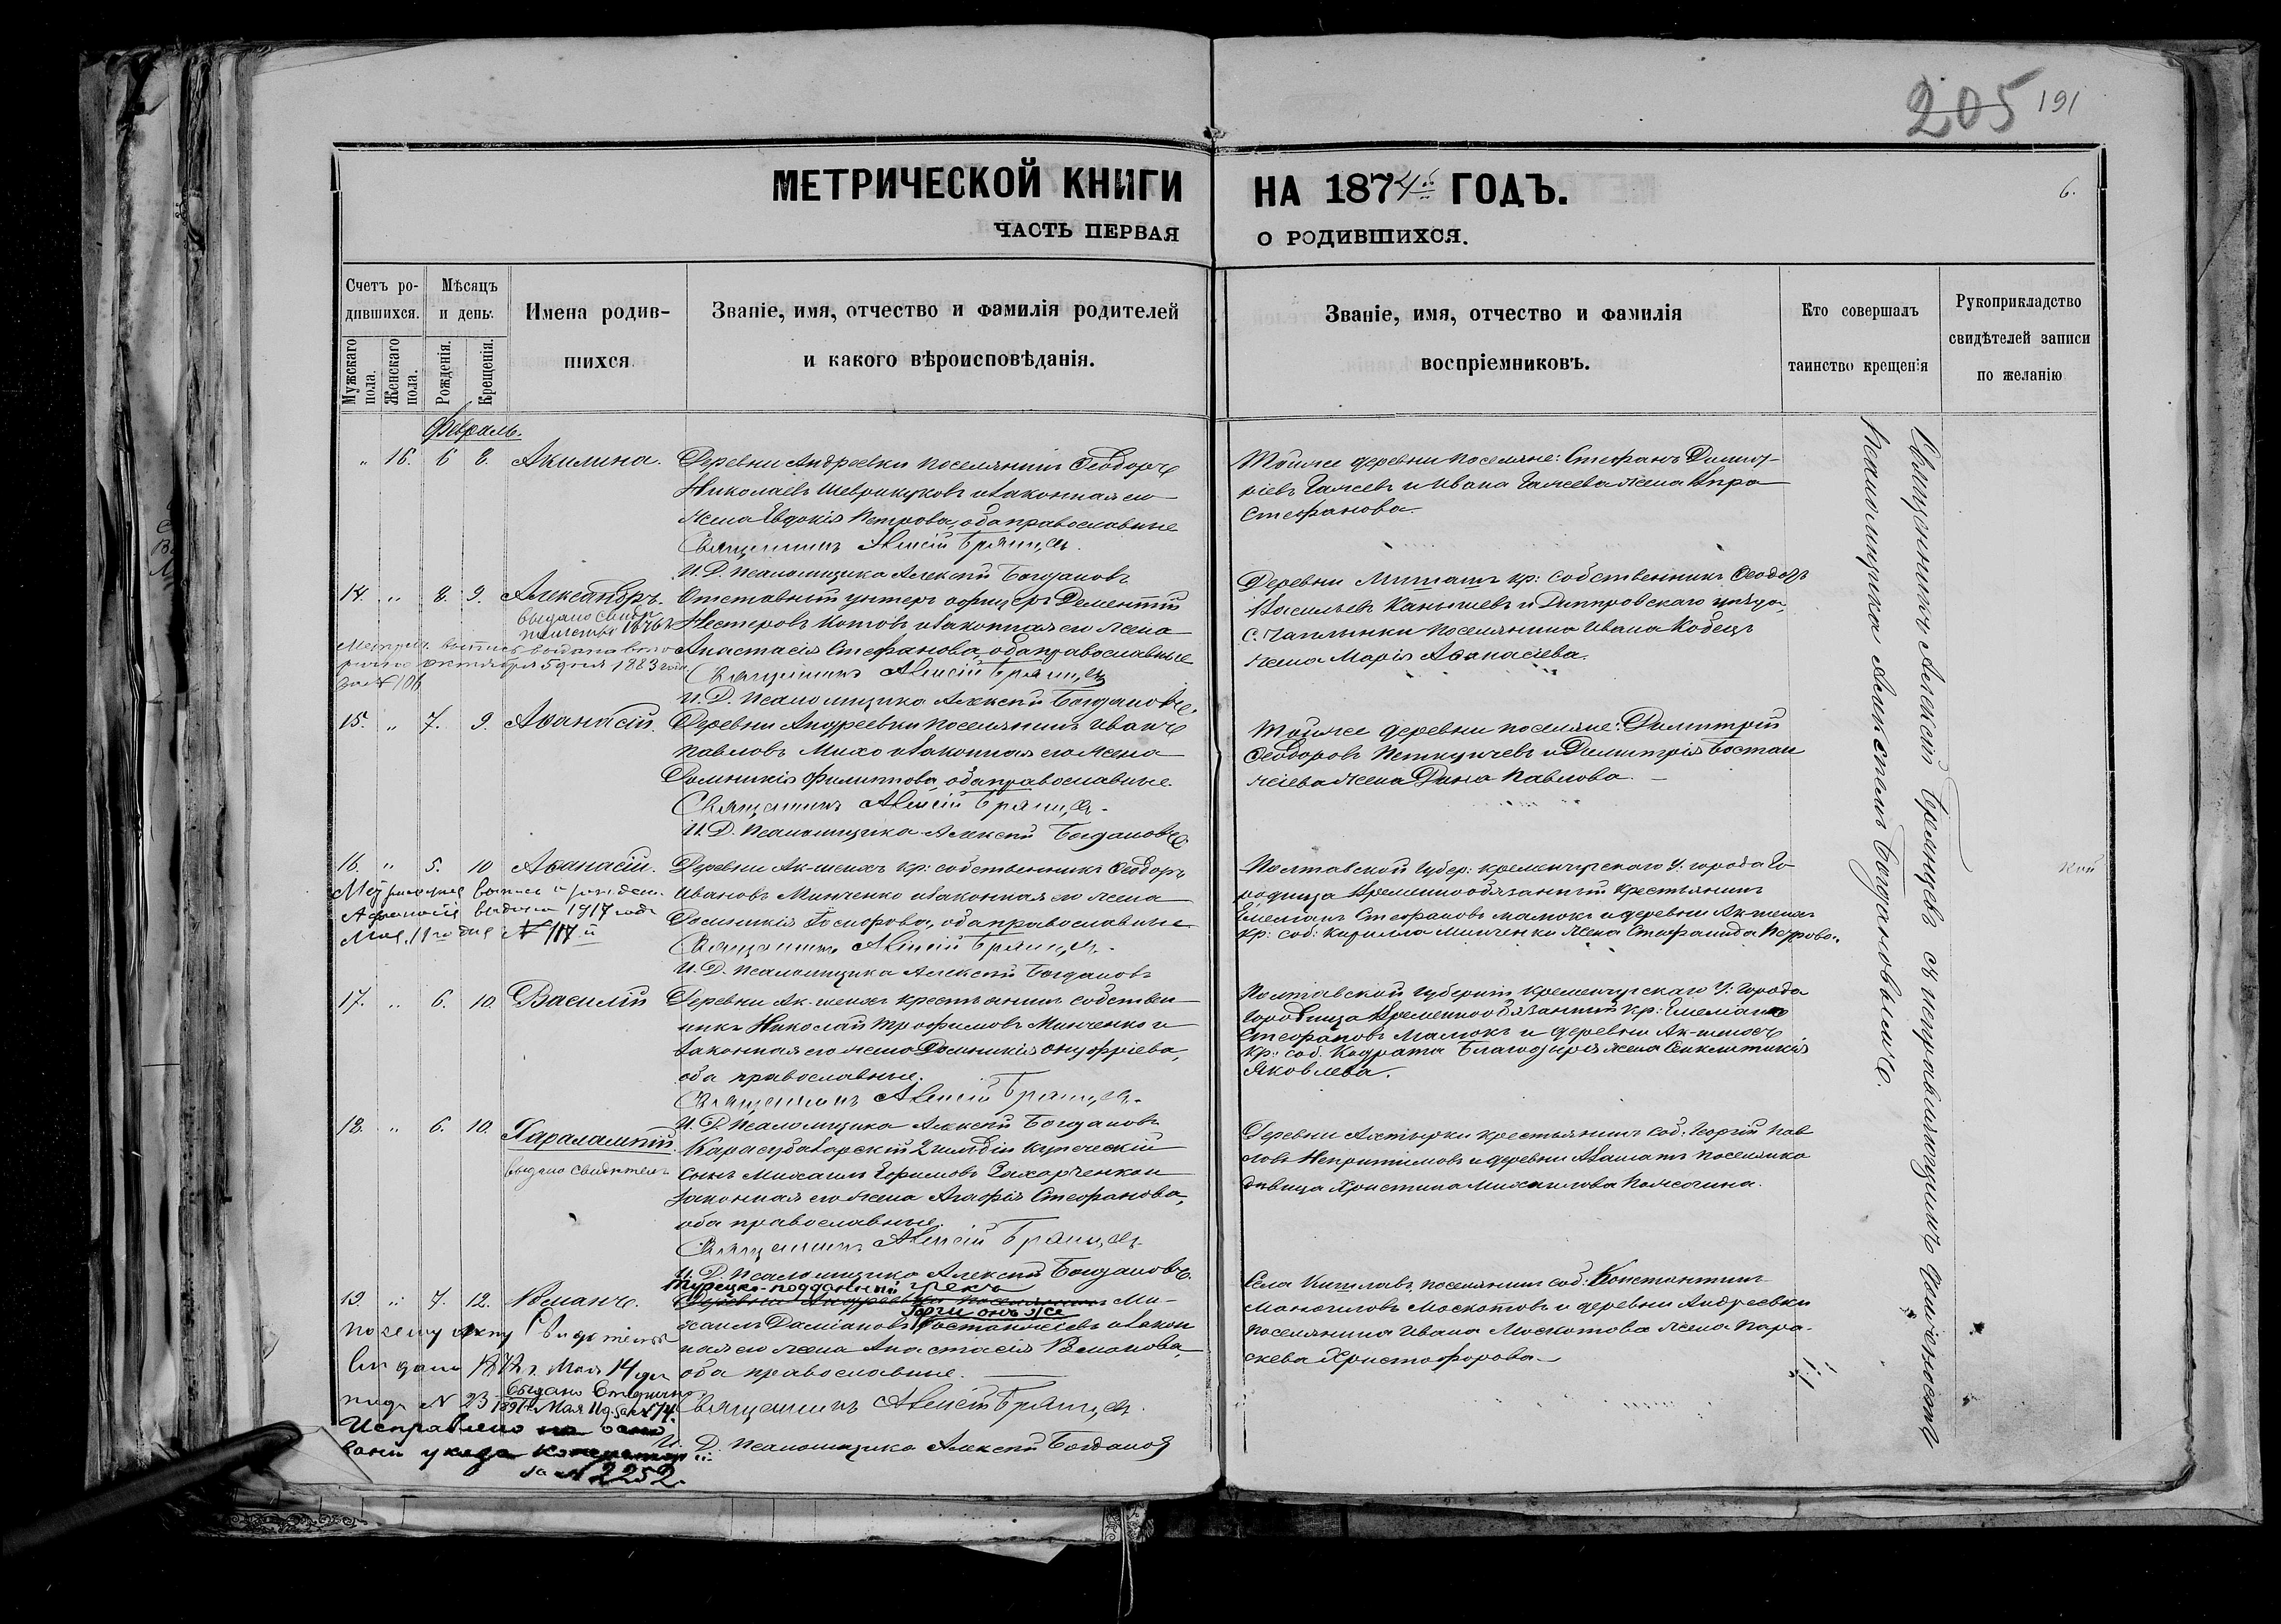 205 191
МЕТРИЧЕСКОЙ КНИГИ НА 1874й ГОДЪ.
6.
ЧАСТЬ ПЕРВАЯ О РОДИВШИХСЯ.
Счетъ родившихся.
Мужескаго пола.
Женскаго пола.
Мѣсяцъ и день.
Рожденія.
Крещенія.
Имена родившихся.
Званіе, имя, отчество и фамилія родителей
и какого вѣроисповѣданія.
Званіе, имя, отчество и фамилія
воспріемниковъ.
Кто совершалъ
таинство крещенія
Рукоприкладство
свидѣтелей записи
по желанію
Февраль.
" 16. 6 8. Акилина.
Деревни Андреевки поселянинъ Ѳеодоръ
Николаевъ Шеврикуковъ и законная его
жена Евдокія Петрова, оба православные
Священникъ Алексій Брянцевъ.
И. Д. Псаломщика Алексѣй Богдановъ
Тойже деревни поселяне: Стефанъ Димит-
ріевъ Гачевъ и Ивана Гачева жена Кира
Стефанова.
14. " 8. 9. Александръ.
выдано свидѣ
тельство 1876 г
Метрич. выпись выдана
октября 5 дня 1883 года
за № 106
Отставный унтеръ офицеръ Дементій
Нестеровъ Котовъ и законная его жена
Анастасія Стефанова, оба православные
Священникъ Алексій Брянцевъ
И. Д. Псаломщика Алексѣй Богдановъ.
Деревни кр: собственникъ Ѳеодоръ
Васильевъ Канышевъ и Днипровскаго уѣзда,
с. Чаплинки поселянина Ивана Кобецъ
жена Марія Аѳанасіева.
15. " 7. 9. Аѳанасій.
Деревни Андреевки поселянинъ Иванъ
Павловъ Михо и законная его жена
Домникія Филиппова, оба православные.
Священникъ Алексій Брянцевъ.
И. Д. Псаломщика Алексѣй Богдановъ
Тойже деревни поселяне: Димитрій
Ѳеодоровъ и Димитрія Бостан
жіева жена Дина Павлова.
16. " 5. 10 Аѳанасій.
Метрическая выпись о рожден.
Афанасія выдана 1917 года
Мая 11го дня № 117й
Деревни Ак-шехъ кр: собственникъ Ѳеодоръ
Ивановъ Минченко и законная его жена
Домникія оба православные
Священникъ Алексій Брянцевъ.
И. Д. Псаломщика Алексѣй Богдановъ
Полтавской Губер: кременчугскаго У: города Го-
родища временнообязанный крестьянинъ
Емеліанъ Стефановъ Малюкъ и деревни Ак-шехъ
кр: соб: Кирилла Минченки жена Стефанида Петрова.
17. " 6. 10. Василій
Деревни Ак-шехъ крестьянинъ собствен-
никъ Николай Трофимовъ Минченко и
законная его жена Домникія Онуфріева,
оба православные.
Священникъ Алексій Брянцевъ.
И. Д. Псаломщика Алексѣй Богдановъ
Полтавской Губерніи кременчугскаго У: города
Городища временнообязанный кр: Емеліанъ
Стефановъ Малюкъ и деревни Ак-шехъ
кр: соб. Кодрата жена Синклитикія
Яковлева.
18. " 6. 10. Харалампій.
выдано свидѣтел.
Карасубазарскій 2 гильдіи купеческій
сынъ Михаилъ Ефимовъ Захарченко и
законная его жена Агафія Стефанова,
оба православные.
Священникъ Алексій Брянцевъ
И. Д. Псаломщика Алексѣй Богдановъ.
Деревни Ахтырки крестьянинъ соб. Георгій Пав
ловъ и деревни поселянка
дѣвица Христина Михаилова
19. " 7. 12. Романъ.
По сему акту видѣтельс
выдано Мая 14 дня
подъ № 23
выдано вторично
1897 г. Мая 11 д. за № 74.
Исправлено на осно
ваніи указа консисторіи
за № 2252.
Турецко-подданный грекъ
Деревни Андреевки поселянинъ Ми-
онъ же
хаилъ Даміановъ Бостанжіевъ и закон
ная его жена Анастасія Романова,
оба православные.
Священникъ Алексій Брянцевъ.
И. Д. Псаломщика Алексѣй Богдановъ
Села поселянинъ соб: Константинъ
Москотовъ и деревни Андреевки
поселянина Ивана Москотова жена Пара-
скева Христофорова.
Священникъ Алексій Брянцевъ съ исправляющимъ должность
Псаломщика Алексѣемъ Богдановымъ.